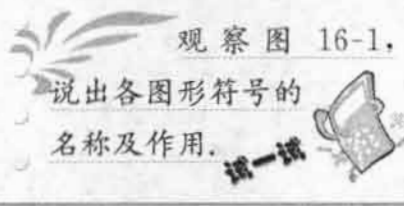 观察图 16-1,
说出各图形符号的
名称及作用.
试一试